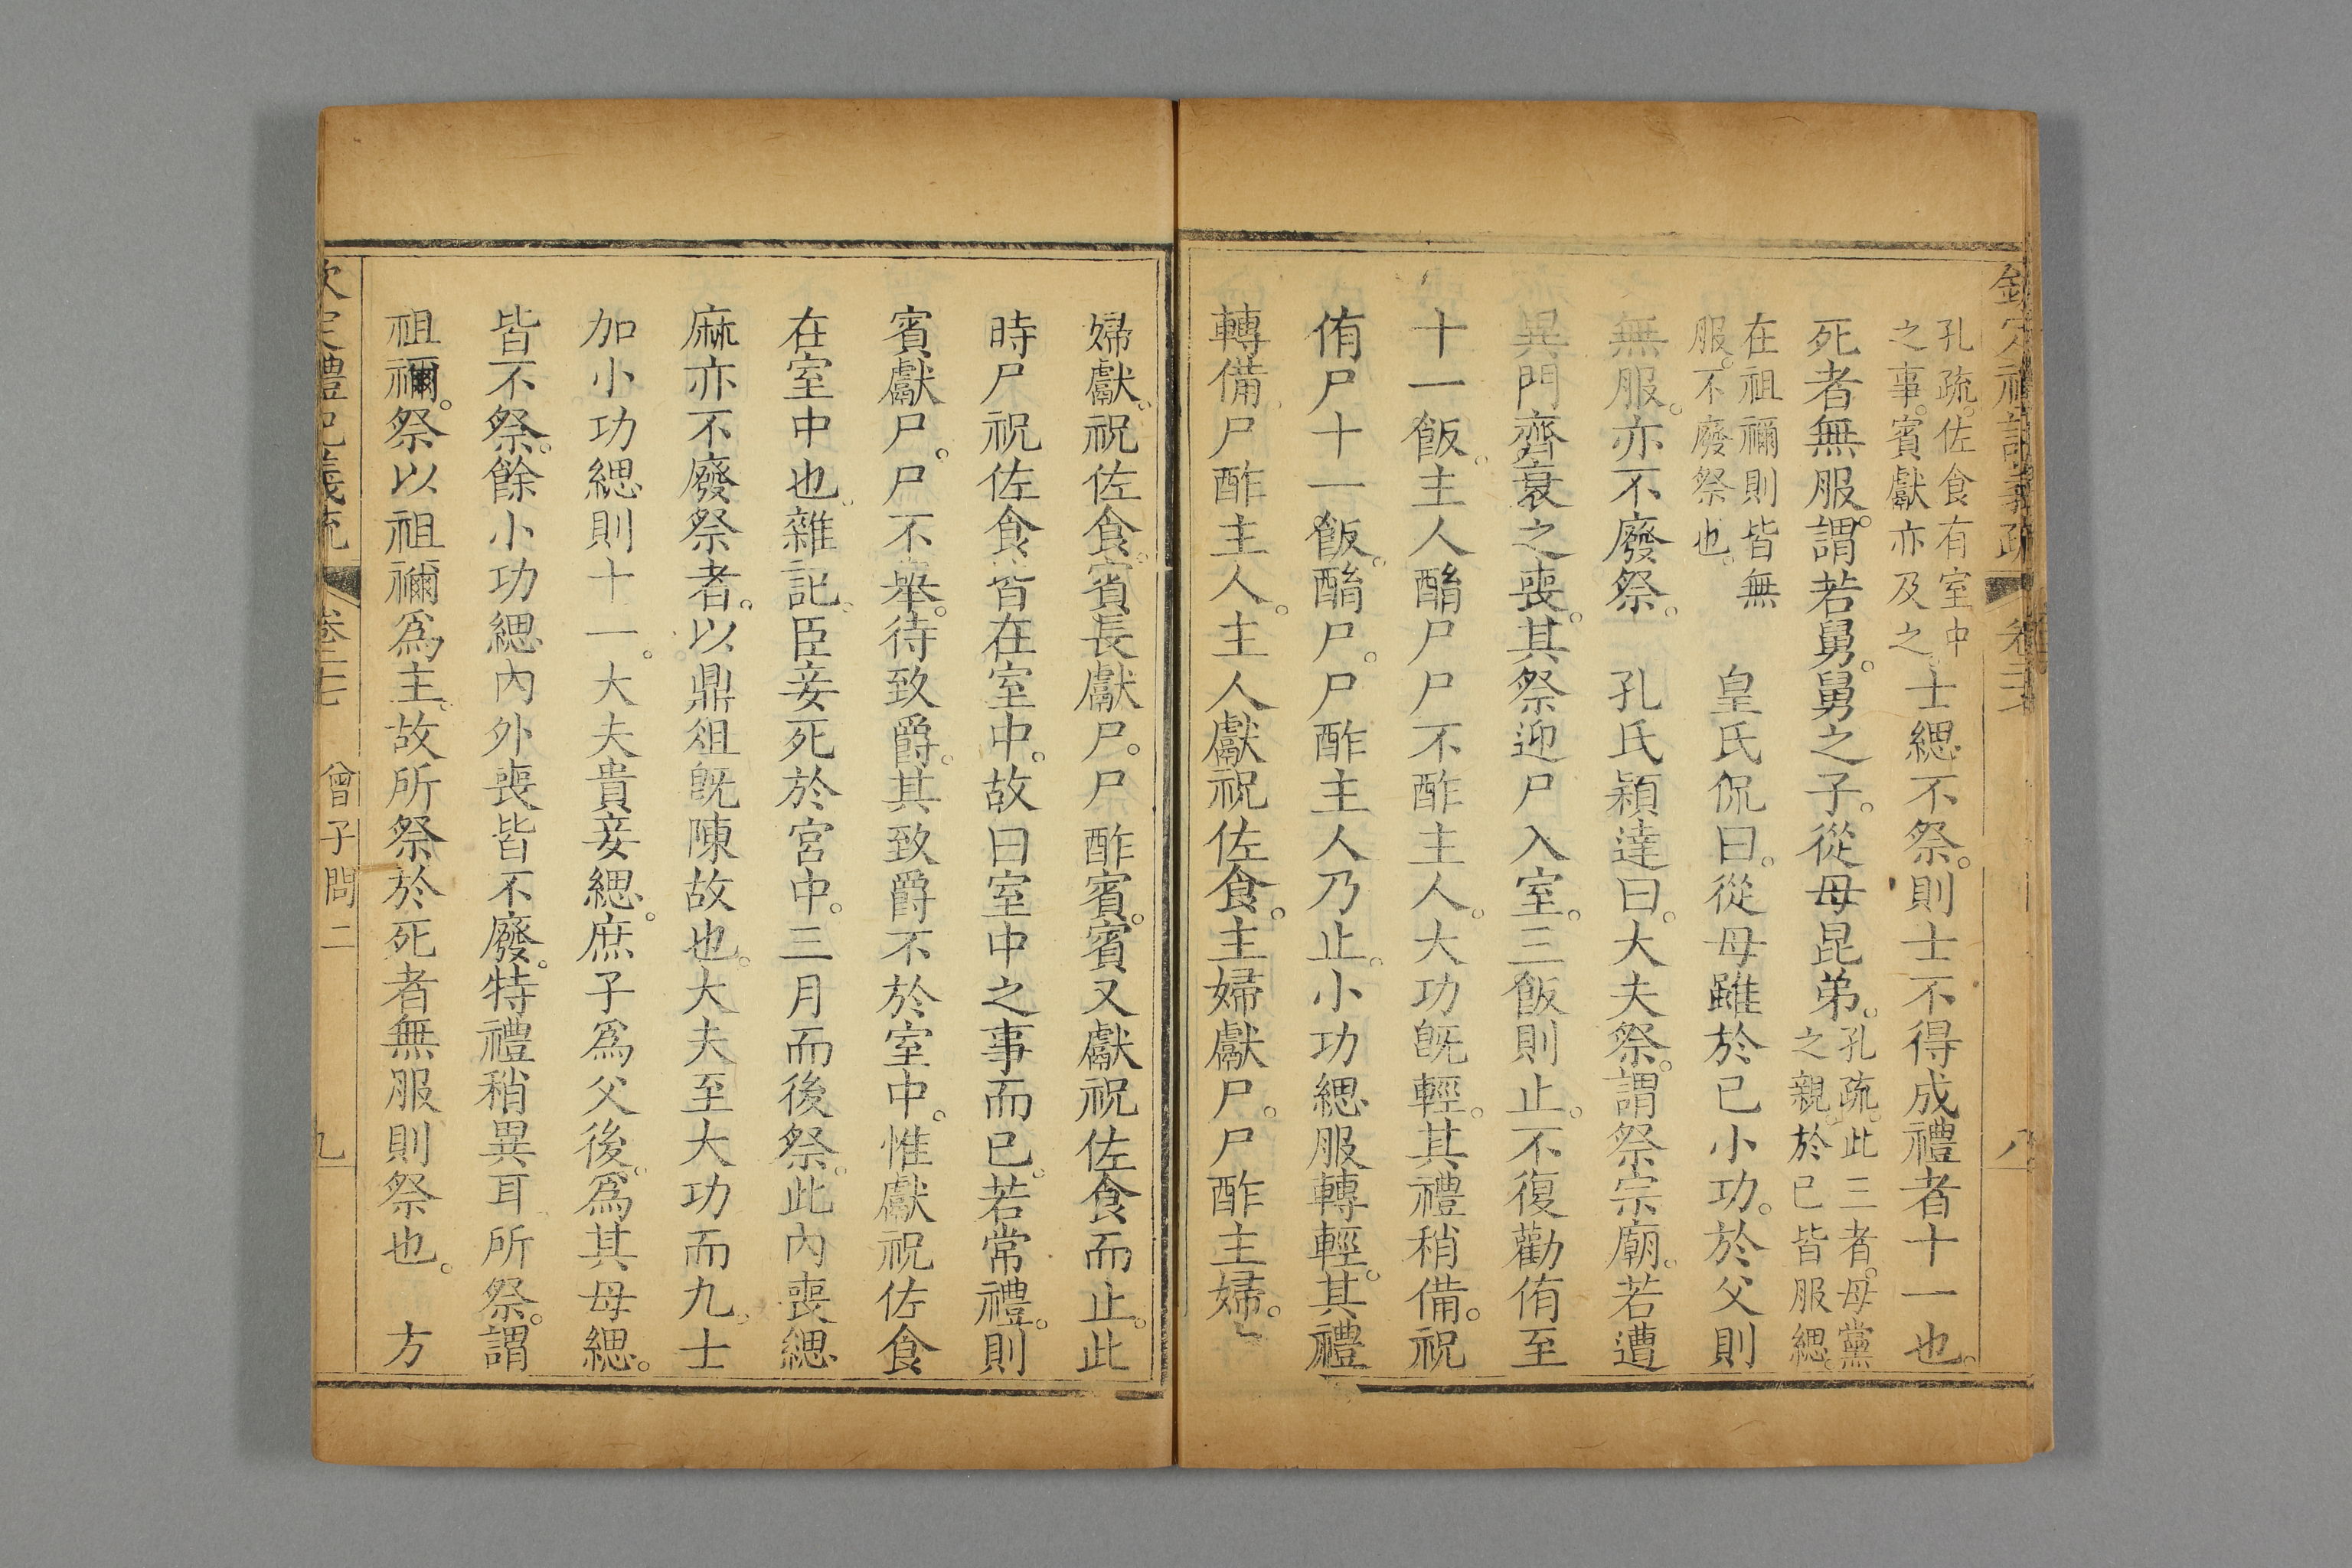 欽定禮記義疏 卷二十七 八
孔疏。佐食有室中
之事。賓獻亦及之
士緦不祭。則士不得成禮者十一也。
死者無服。謂若舅。舅之子。從母昆弟。
孔疏。此三者。母黨
之親。於已皆服緦。
在祖禰則皆無
服。不廢祭也。
皇氏侃曰。從母雖於已小功。於父則
無服。亦不廢祭。 孔氏穎達曰。大夫祭。謂祭宗廟。若遭
異門齊衰之喪。其祭迎尸入室。三飯則止。不復勸侑至
十一飯。主人酳尸尸不酢主人。大功旣輕。其禮稍備。祝
侑尸十一飯。酳尸。尸酢主人乃止。小功緦服轉輕。其禮
轉備尸酢主人。主人獻祝佐食。主婦獻尸。尸酢主婦。
婦獻。祝佐食。賓長獻尸。尸酢賓。賓又獻祝佐食而止。此
時尸祝佐食皆在室中。故曰室中之事而已。若常禮。則
賓獻尸。尸不舉。待致爵。其致爵不於室中。惟獻祝佐食
在室中也。雜記。臣妾死於宮中。三月而後祭。此內喪緦
麻亦不廢祭者。以鼎俎旣陳故也。大夫至大功而九。士
加小功緦則十一。大夫貴妾緦。庶子爲父後。爲其母緦。
皆不祭。餘小功緦內外喪皆不廢。特禮稍異耳所祭。謂
祖禰。祭以祖禰爲主。故所祭於死者無服則祭也。 方
欽定禮記義疏 卷二十七 曾子問二 九